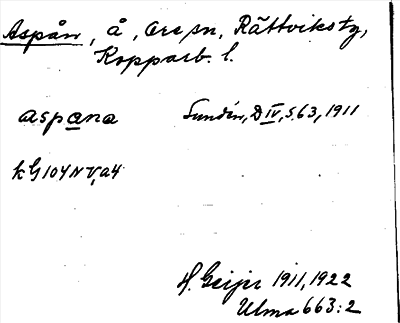 Aspån, å, Ore sn, Rättviks tg,
Kopparb. l.
aspana Sundén, D IV, s. 63, 1911
kG 104 N V, a4
H. Geijer 1911, 1922
Ulma 663:2